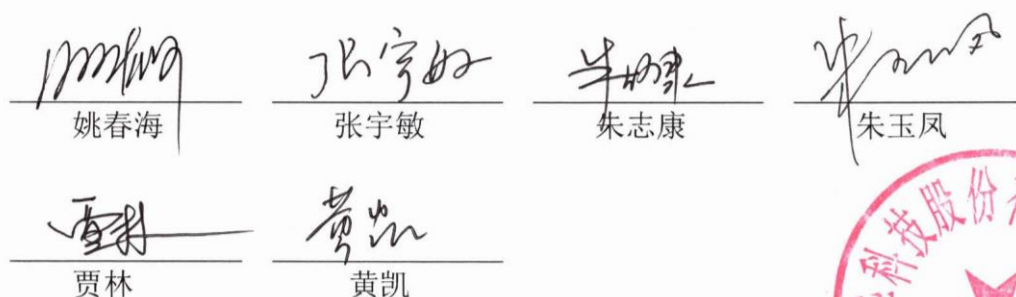 姚春海 张宇敏 朱志康 朱玉凤
贾林 黄凯
科技股份